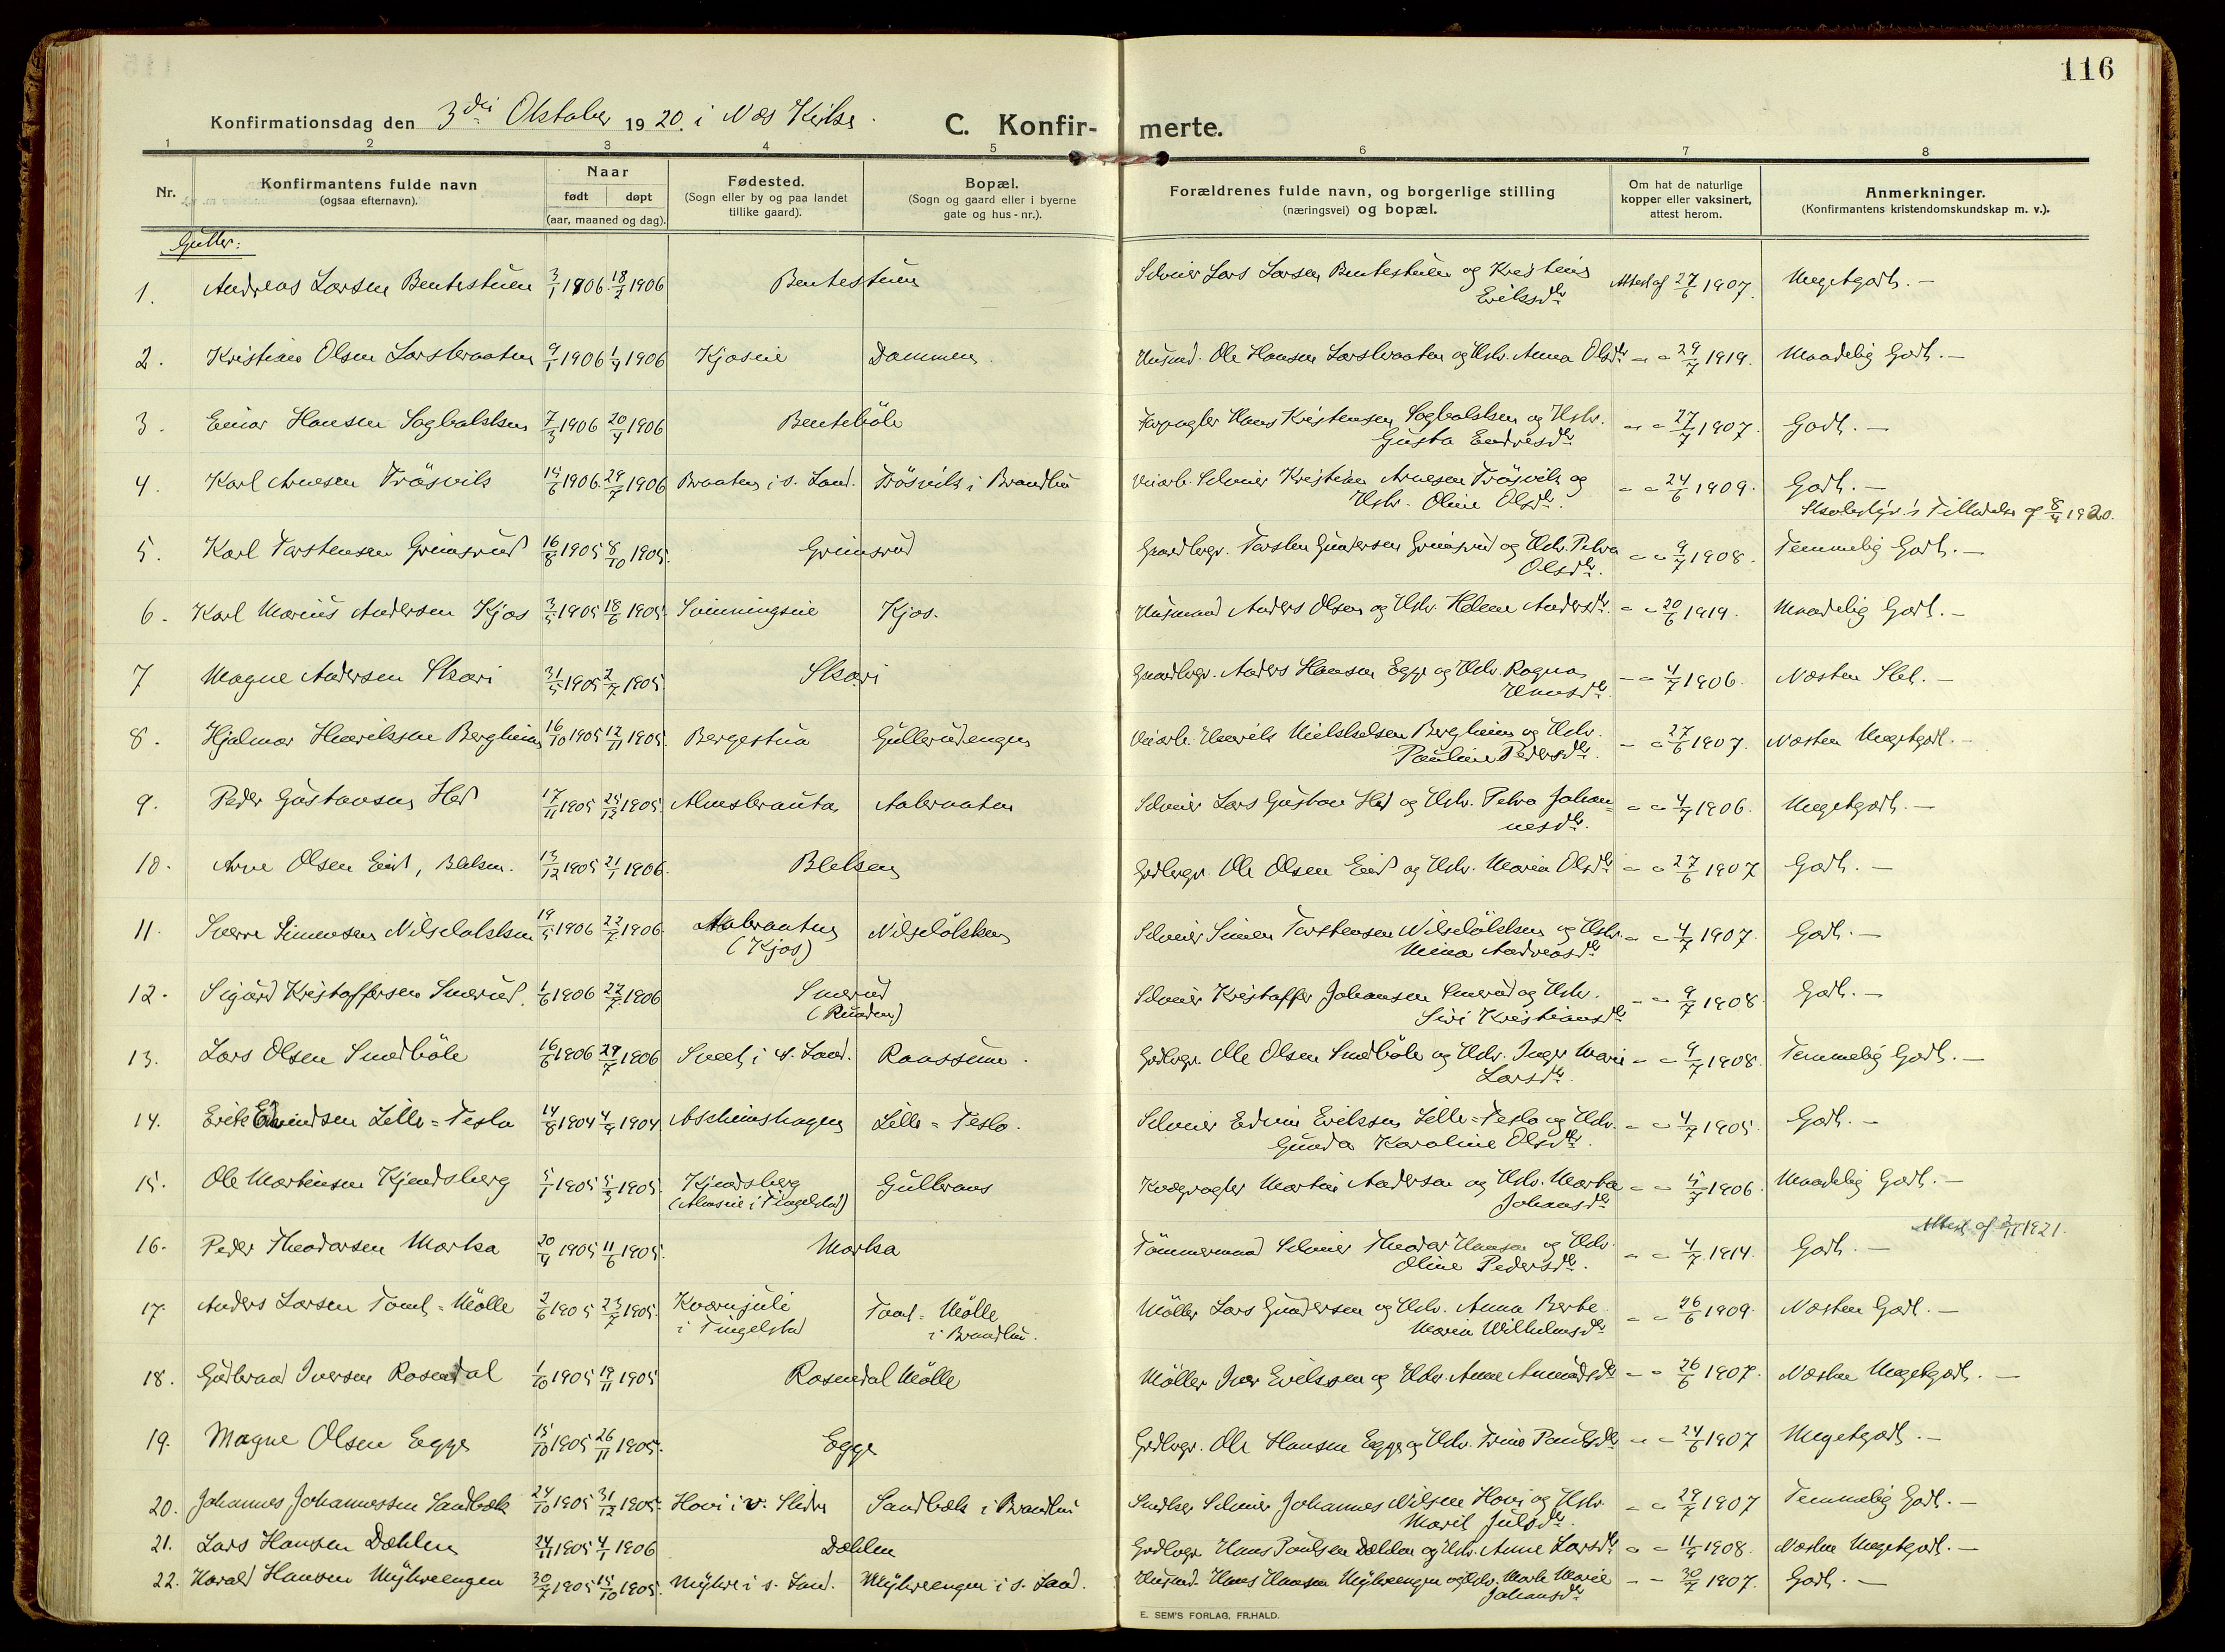 116
Konfirmationsdag den 3die Oktober 1920. i Næs Kirke.
C. Konfirmerte.
1 2 3 4 5 6 7 8
Nr. Konfirmantens fulde navn (ogsaa efternavn). Naar født døpt (aar, maaned og dag). Fødested. (Sogn eller by og paa landet tillike gaard). Bopæl. (Sogn og gaard eller i byerne gate og hus-nr.). Forældrenes fulde navn, og borgerlige stilling (næringsvei) og bopæl. Om hat de naturlige kopper eller vaksinert, attest herom. Anmerkninger. (Konfirmantens kristendomskundskap m. v.).
Gutter:
1. Andreas Larsen Bentestuen 3/1 1906. 18/2 1906 Bentestuen Selveier Lars Larsen Bentestuen og Kristine Eriksdtr Attest af 27/6 1907. Megetgodt.—
2. Kristian Olsen Larsbraaten 9/1 1906 1/4 1906 Kjoseie Dammen. Husmd. Ole Hansen Larsbraaten og Hstr. Anna Olsdtr — " 29/7 1919. Maadelig Godt.—
3. Einar Hansen Sagbakken 7/3 1906 20/4 1906 Bentebøle Hans Kristensen Sagbakken og Hstr. Gusta Endresdtr — " 27/7 1907. Godt.—
4. Karl Arnesen Trøsvik 14/6 1906. 29/7 1906 Braaten i s. Land. Trøsvik i Brandbu Veiarb. Selveier Kristian Arnesen Trøsvik og Hstr. Oline Olsdtr. " " 24/6 1909. Godt.—
Skolestyr's Tilladelse af 8/9 1920.
5. Karl Torstensen Grinsrud 16/8 1905 8/10 1905. Grinsrud Gaardbrgr. Torsten Gundersen Grinsrud og Hstr. Petra Olsdtr. — " 9/7 1908. Temmelig Godt.—
6. Karl Marius Andersen Kjos 3/5 1905 18/6 1905. Svinningseie Kjos. Husmand Anders Olsen og Hstr. Helene Andersdtr. " " 20/6 1919. Maadelig Godt.—
7 Magne Andersen Skari 31/5 1905 2/7 1905. Skari Gaardbrgr. Anders Hansen Egge og Hstr. Ragna Hansdtr. — " 4/7 1906. Næsten Slet.—
8. Hjalmar Henriksen Bergheim 16/10 1905 12/11 1905. Bergestua Gullerudengen Veiarb. Henrik Bergheim og Hstr. Pauline Pedersdtr. — " 27/6 1907. Næsten Megetgodt.—
9. Peder Gustavsen Hed 17/11 1905 25/12 1905. Almsbrauta Aabraaten Selveier Lars Gustav Hed og Hstr. Petra Johannesdtr. " " 4/7 1906. Megetgodt.—
10. Arne Olsen Eid, Blaksen. 13/12 1905 21/1 1906. Bleksen Grdbrgr. Ole Olsen Eid og Hstr. Maria Olsdtr " " 27/6 1907 Godt.—
11. Sverre Simensen Nilsebakken 19/5 1906 22/7 1906. Aabraaten (Kjos) Nilsebakken Selveier Simen Torstensen Nilsebakken og Hstr. Mina Andreasdtr — " 4/7 1907. Godt.—
12. Sigurd Kristoffersen Smerud. 1/6 1906 22/7 1906 Smerud (Ruaden) Selveier Kristoffer Johansen Smerud og Hstr. Siri Kristiansdtr — " 9/7 1908. Godt.—
13. Lars Olsen Smedbøle 16/6 1906 29/7 1906 i s. Land. Raassum. Grdbrgr. Ole Olsen Smedbøle og Hstr. Inger Marie Larsdtr. — " 9/7 1908. Temmelig Godt.—
14. Erik Edvindsen Lille-Teslo 14/8 1904 4/9 1904 Ascheimshagen Lille-Teslo. Selveier Edvin Eriksen Lille-Teslo og Hstr. Gunda Karoline Olsdtr. — " 4/7 1905. Godt.—
15. Ole Martinsen Kjendsberg 5/1 1905 5/3 1905. Kjendsberg (Almseie i Tingelstad) Gulbrans Kvægrøgter Martin Andersen og Hstr. Marta Johansdtr " — 5/7 1906. Maadelig Godt.—
16. Peder Theodorsen Morka 20/4 1905 11/6 1905. Morka Tømmermand Selveier Theodor Hansen og Hstr. Oline Pedersdtr. " " 4/7 1914. Godt.— Attest af 2/11 1921.
17. Anders Larsen Tomt-Mølle 2/6 1905 23/7 1905. Kværnjuli i Tingelstad Tomt-Mølle i Brandbu. Møller Lars Gundersen og Hstr. Anna Berte Maria Wilhelmsdtr — " 26/6 1909. Næsten Godt.—
18. Gudbrand Iversen Rosendal 1/10 1905 19/11 1905 Rosendal Mølle Møller Iver Erikssen og Hstr. Anne Amundsdtr — " 26/6 1907. Næsten Megetgodt.—
19. Magne Olsen Egge 15/10 1905 26/11 1905. Egge Grdbrgr. Ole Hansen Egge og Hstr. Trine Paulsdtr " — 24/6 1907 Megetgodt.—
20. Johannes Johannessen Sandbæk 24/10 1905 31/12 1905. Hovi i v. Slidre Sandbæk i Brandbu Snedker Selveier Johannes Nilsen Hovi og Hstr. Marit Julsdtr. " " 29/7 1907 Temmelig Godt.—
21. Lars Hansen Dæhlen 24/11 1905 4/1 1906 Dæhlen Grdbrgr Hans Paulsen Dæhlen og Hstr. Anne Larsdtr " — 11/9 1908. Næsten Megetgodt.—
22. Harald Hansen Myhreengen 30/7 1905 15/10 1905. Myhre i s. Land. Myhreengen i s. Land. Husmd. Hans Hansen Myhreengen og Hstr. Marte Marie Johansdtr — — 30/9 1907. Godt.—
E. SEM'S FORLAG, FR.HALD.